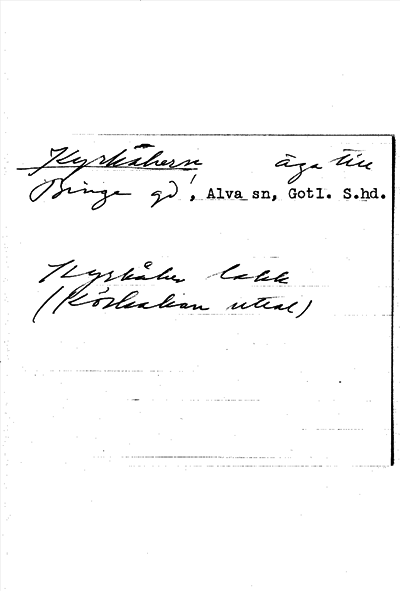 Kyrkåkern äga till
Binge gd, Alva sn, Gotl. S.hd.
Kyrkåker lakk
(Körkakran uttal)